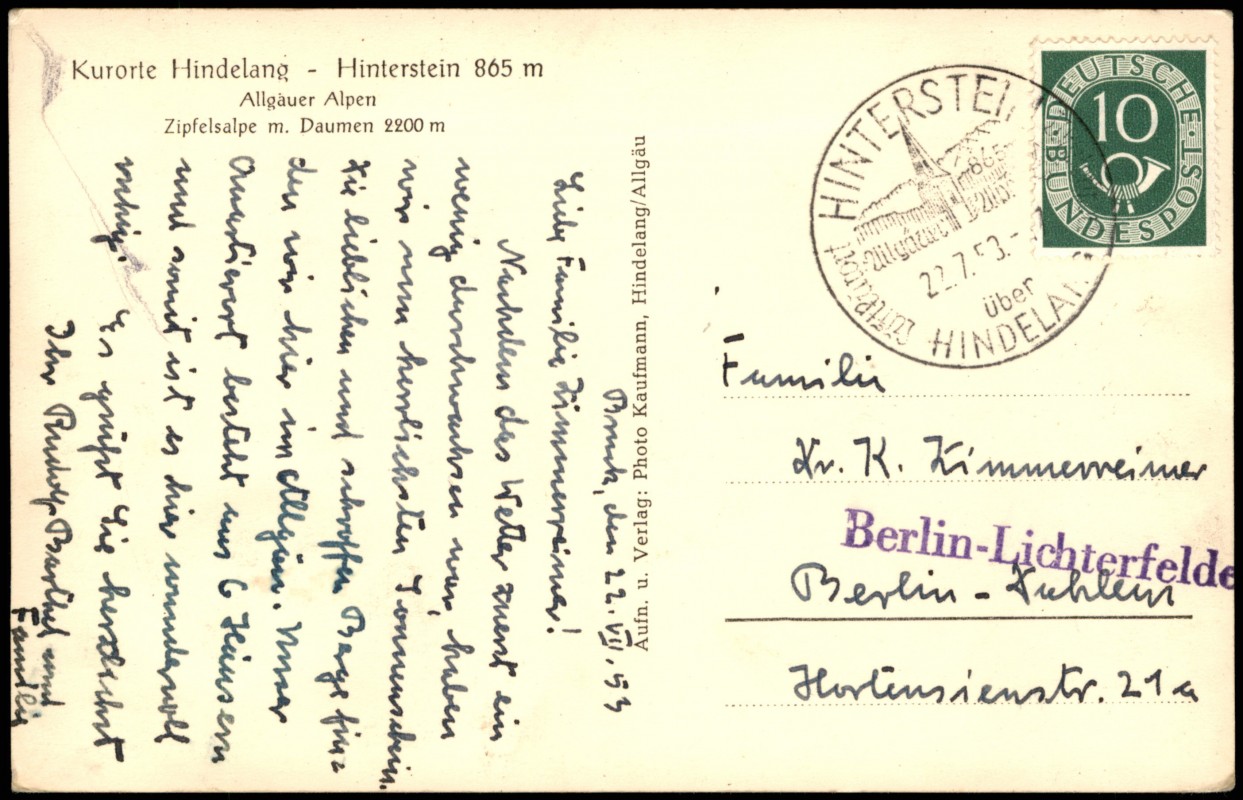 Kurorte Hindelang - Hinterstein 865 m
Allgäuer Alpen
Zipfelsalpe m. Daumen 2200 m
Bruck, den 22. VII. 53
Liebe Familie Zimmerreimer!
Nachdem das Wetter zuerst ein
wenig durchwachsen war, haben
wir nun herrlichsten Sonnenschein.
Die lieblichen und schroffen Berge
den wir hier im Allgäu. Unser
Quartierort besteht aus 6 Häusern
und somit ist es hier wundervoll
ruhig. Es grüßt Sie herzlichst
Ihr Rudolf Barthel und
Familie
Aufn. u. Verlag: Photo Kaufmann, Hindelang/Allgäu
HINTERSTEIN
865
Allgäuer
22.7.53.-
über
HINDELANG
DEUTSCHE BUNDESPOST
10
Familie
Dr. K. Zimmerreimer
Berlin-Lichterfelde
Berlin - Dahlem
Hortensienstr. 21a